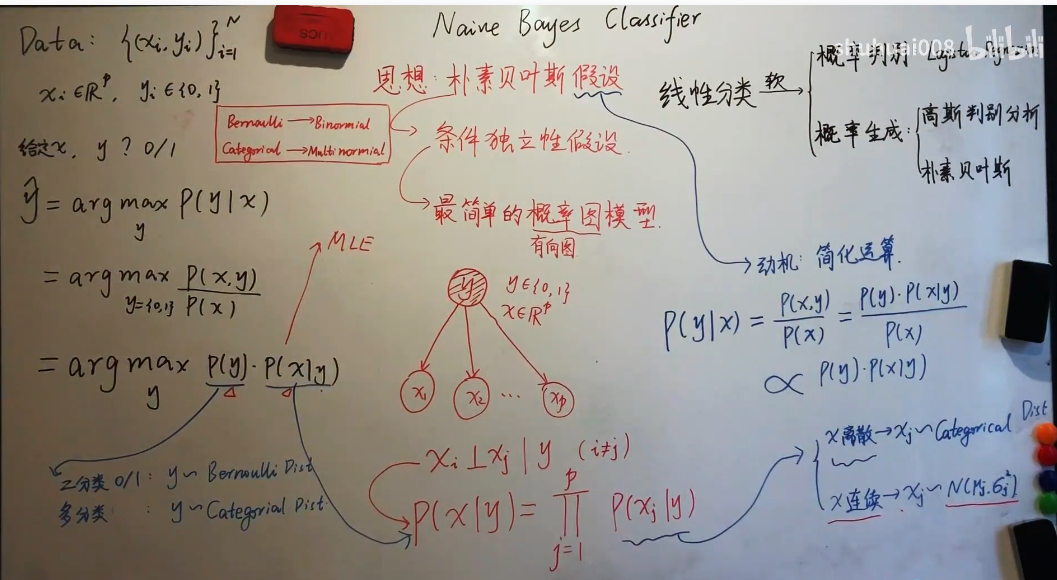 Naive Bayes Classifier
Data: {(xᵢ, yᵢ)}ᵢ₌₁ᴺ
xᵢ ∈ ℝᵖ, yᵢ ∈ {0, 1}
给定x, y ? 0/1
ŷ = arg max_y P(y|x)
= arg max_{y={0,1}} P(x,y) / P(x)
= arg max_y P(y)·P(x|y)
MLE
2分类 0/1: y ~ Bernoulli Dist
多分类 : y ~ Categorial Dist
思想: 朴素贝叶斯假设
Bernoulli → Binormial
Categorial → Multinormial
条件独立性假设.
最简单的概率图模型.
有向图
y
y ∈ {0, 1}
x ∈ ℝᵖ
x₁ x₂ ... xₚ
xᵢ ⊥ xⱼ | y (i≠j)
P(x|y) = ∏_{j=1}^{p} P(xⱼ|y)
shuhuai008
bilibili
线性分类 软→
概率判别
概率生成:
高斯判别分析
朴素贝叶斯
动机: 简化运算.
P(y|x) = P(x,y) / P(x) = P(y)·P(x|y) / P(x)
∝ P(y)·P(x|y)
x离散 → xⱼ ~ Categorical Dist
x连续 → xⱼ ~ N(μⱼ, σⱼ²)